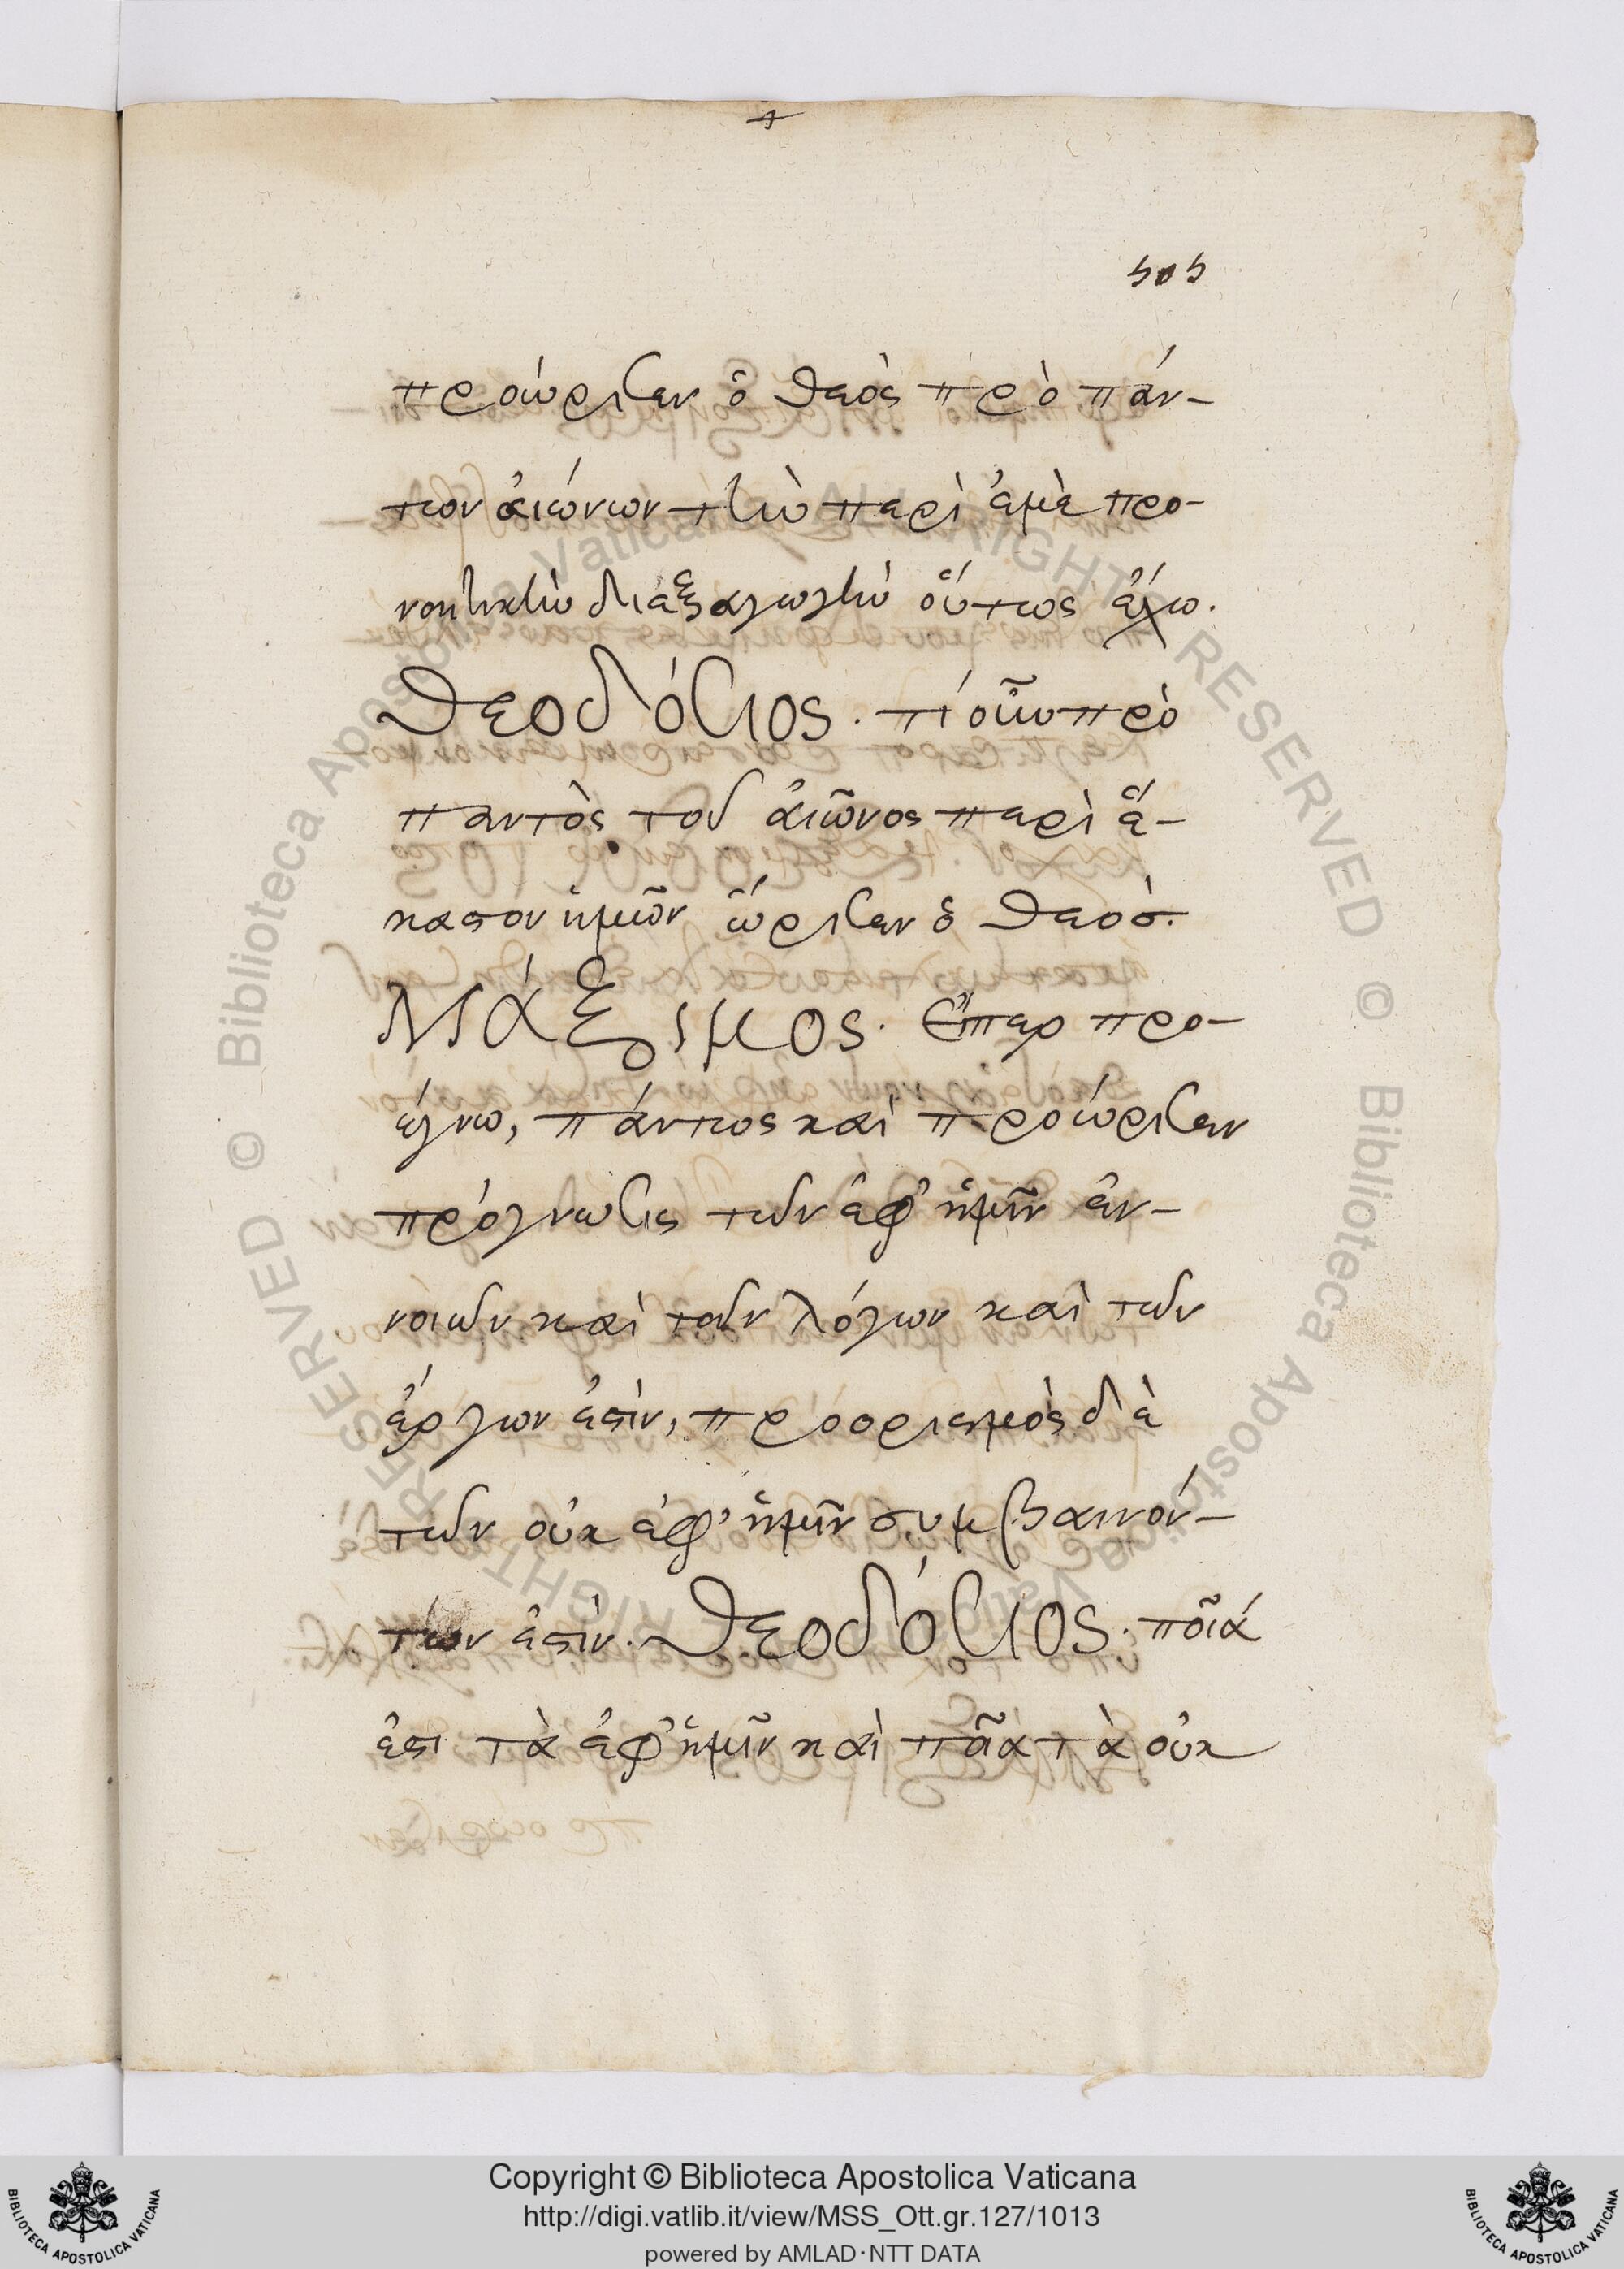 505
προώρισεν ὁ θεὸς πρὸ πάν-
των αἰώνων τὴν περὶ ἐμὲ προ-
νοητικὴν διεξαγωγὴν οὕτως ἔχω.
θεοδόσιος. τί οὖν πρὸ
παντὸς τοῦ αἰῶνος περὶ ἑ-
καστον ἡμῶν ὥρισεν ὁ θεός.
Μάξιμος. Εἴπερ προ-
έγνω, πάντως καὶ προώρισεν
πρόγνωσις τῶν ἐφ' ἡμῖν ἐν-
νοιῶν καὶ τῶν λόγων καὶ τῶν
ἔργων ἐστὶν, προορισμὸς δὲ
τῶν οὐκ ἐφ' ἡμῖν συμβαινόν-
των ἐστίν. θεοδόσιος. ποῖά
ἐστι τὰ ἐφ' ἡμῖν καὶ ποῖα τὰ οὐκ
Copyright © Biblioteca Apostolica Vaticana
http://digi.vatlib.it/view/MSS_Ott.gr.127/1013
powered by AMLAD·NTT DATA
BIBLIOTECA APOSTOLICA VATICANA
BIBLIOTECA APOSTOLICA VATICANA